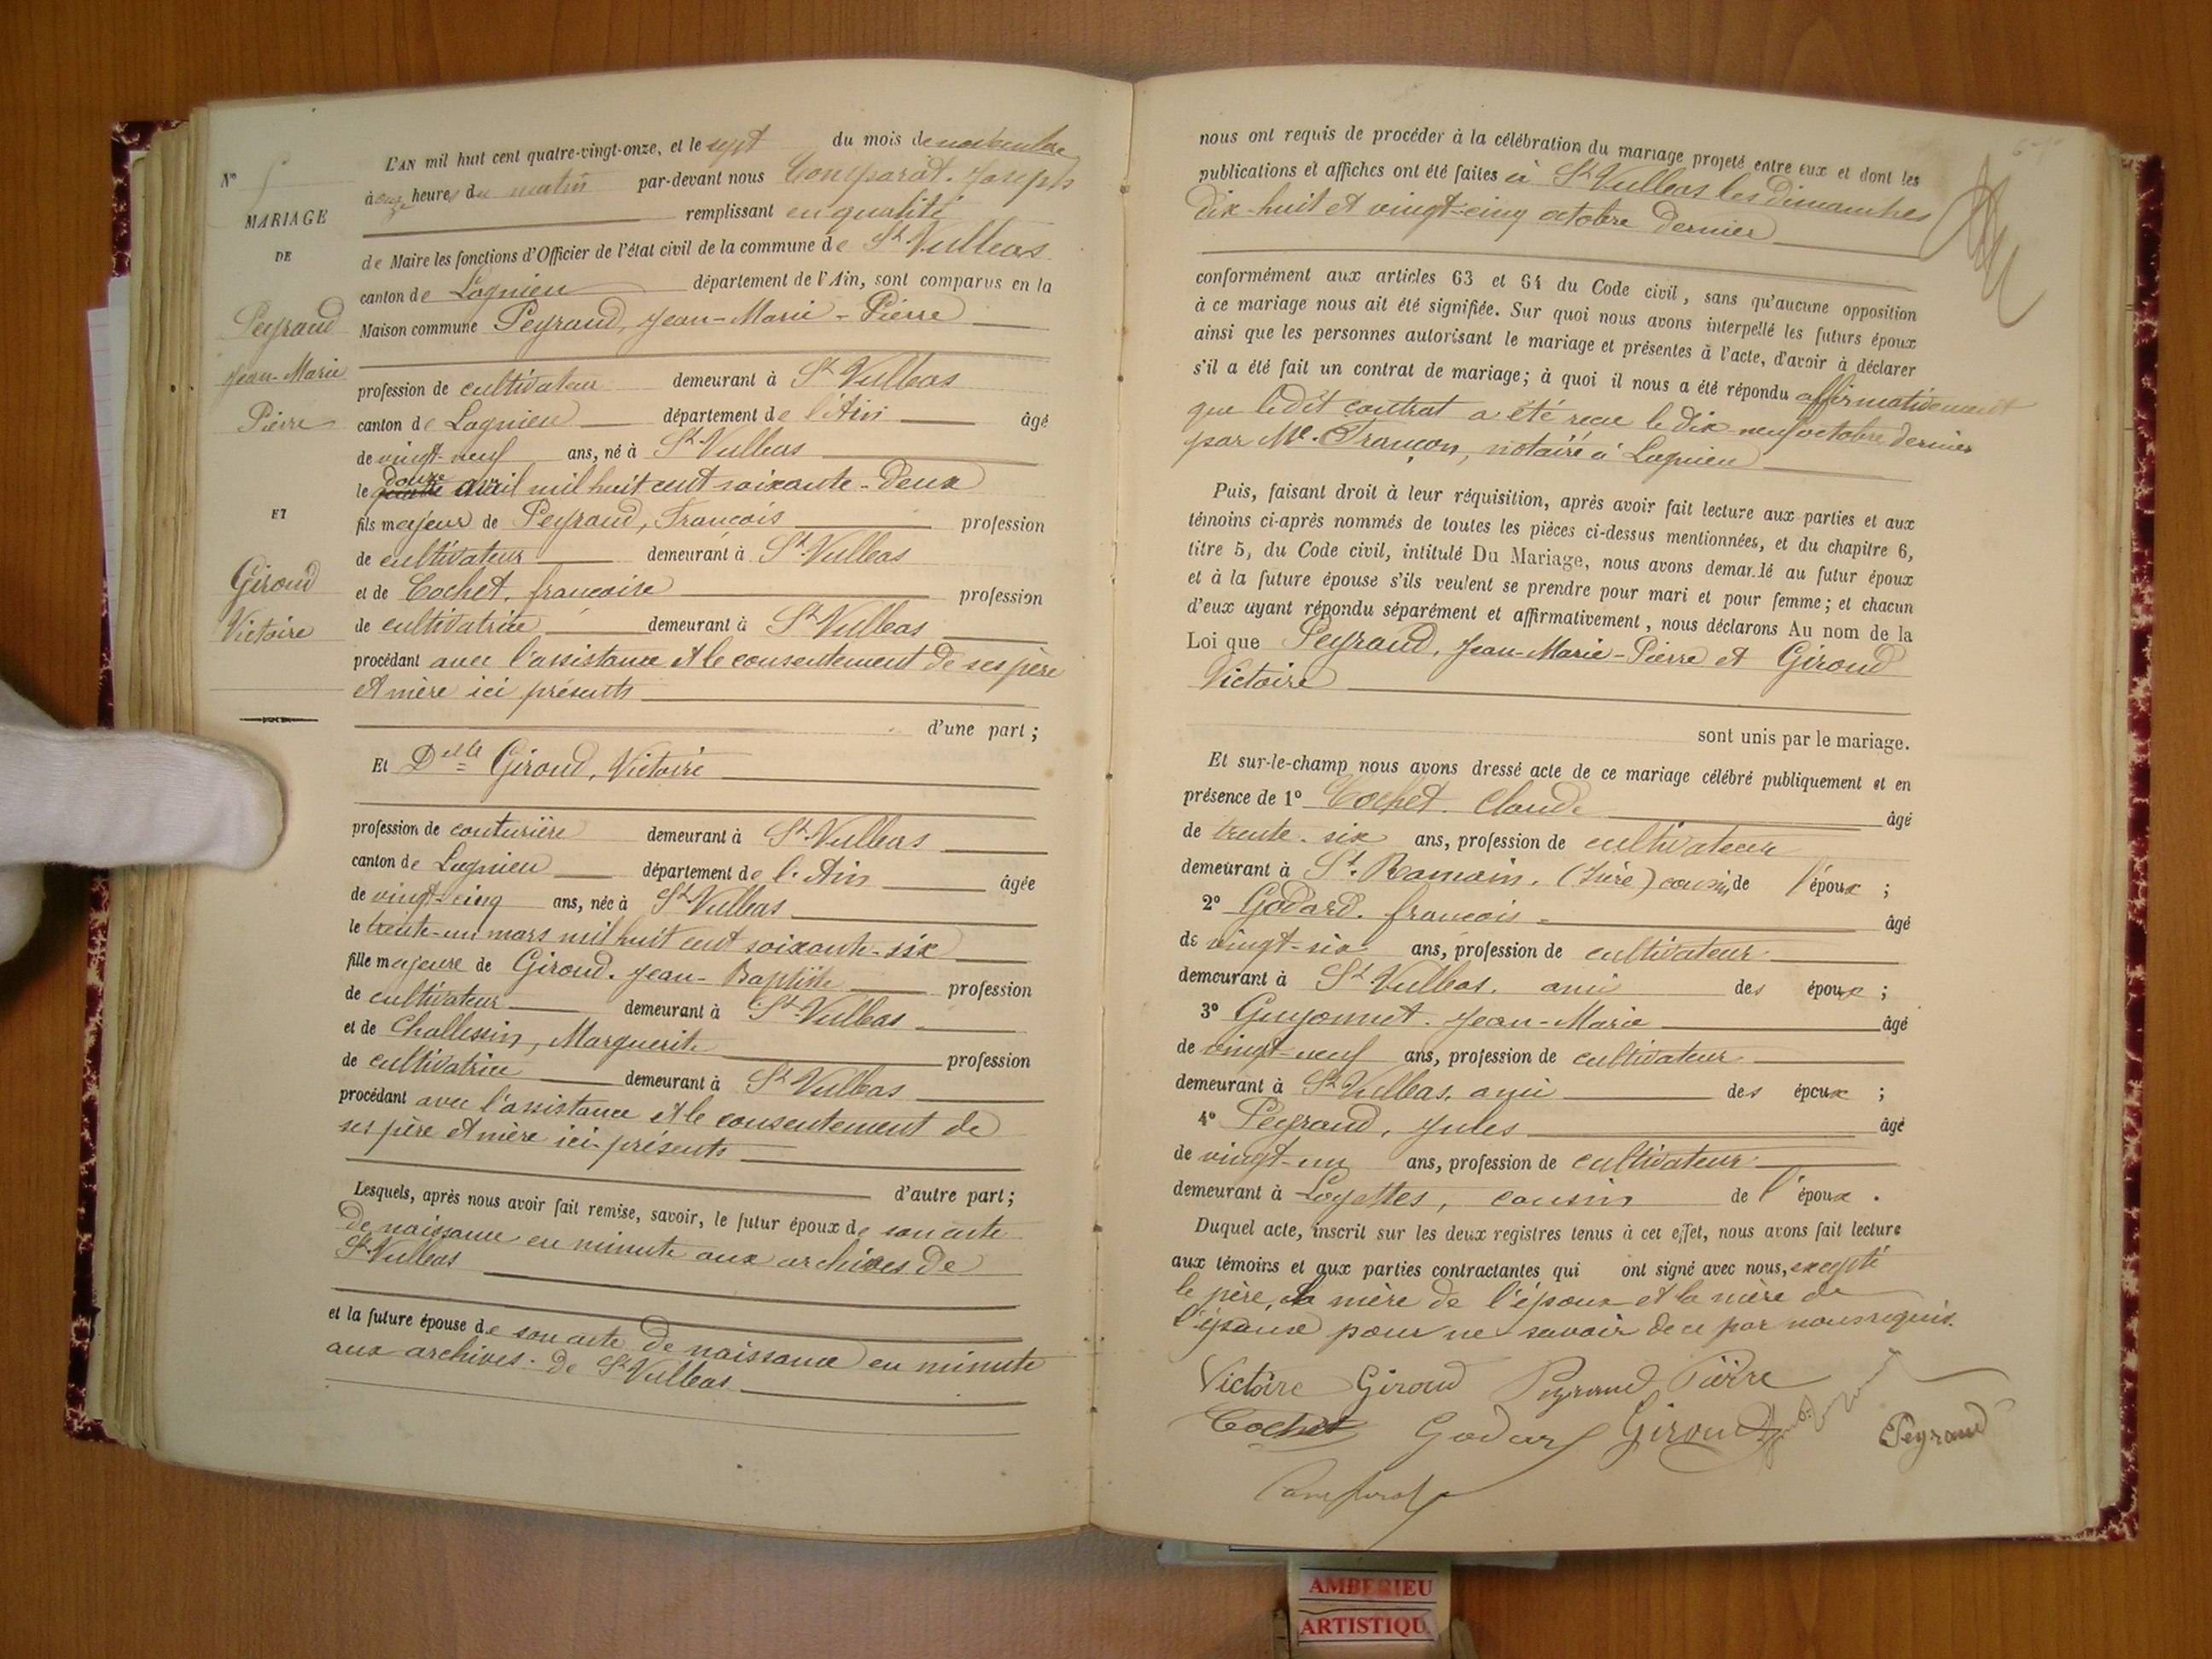 N° 5
MARIAGE
DE
Peyraud
Jean-Marie
Pierre
ET
Giroud
Victoire
L'AN mil huit cent quatre-vingt-onze, et le sept du mois de novembre
à onze heures du matin par-devant nous Comparat. Joseph
remplissant en qualité
de Maire les fonctions d'Officier de l'état civil de la commune de St Vulbas
canton de Lagnieu département de l'Ain, sont comparus en la
Maison commune Peyraud, Jean-Marie-Pierre
profession de cultivateur demeurant à St Vulbas
canton de Lagnieu département de l'Ain âgé
de vingt-neuf ans, né à St Vulbas
le douze avril mil huit cent soixante-deux
fils majeur de Peyraud, François profession
de cultivateur demeurant à St Vulbas
et de Cochet, françoise profession
de cultivatrice demeurant à St Vulbas
procédant avec l'assistance et le consentement de ses père
et mère ici présents
d'une part ;
Et Delle Giroud, Victoire
profession de couturière demeurant à St Vulbas
canton de Lagnieu département de l'Ain âgée
de vingt-cinq ans, née à St Vulbas
le trente-un mars mil huit cent soixante-six
fille majeure de Giroud. Jean-Baptiste profession
de cultivateur demeurant à St Vulbas
et de Challessin, Marguerite profession
de cultivatrice demeurant à St Vulbas
procédant avec l'assistance et le consentement de
ses père et mère ici présents
d'autre part ;
Lesquels, après nous avoir fait remise, savoir, le futur époux de son acte
de naissance en minute aux archives de
St Vulbas
et la future épouse de son acte de naissance en minute
aux archives de St Vulbas
nous ont requis de procéder à la célébration du mariage projeté entre eux et dont les
publications et affiches ont été faites à St Vulbas les dimanches
dix-huit et vingt-cinq octobre dernier
conformément aux articles 63 et 64 du Code civil, sans qu'aucune opposition
à ce mariage nous ait été signifiée. Sur quoi nous avons interpellé les futurs époux
ainsi que les personnes autorisant le mariage et présentes à l'acte, d'avoir à déclarer
s'il a été fait un contrat de mariage ; à quoi il nous a été répondu affirmativement
que ledit contrat a été reçu le dix-neuf octobre dernier
par Me. Françon, notaire à Lagnieu
Puis, faisant droit à leur réquisition, après avoir fait lecture aux parties et aux
témoins ci-après nommés de toutes les pièces ci-dessus mentionnées, et du chapitre 6,
titre 5, du Code civil, intitulé Du Mariage, nous avons demandé au futur époux
et à la future épouse s'ils veulent se prendre pour mari et pour femme ; et chacun
d'eux ayant répondu séparément et affirmativement, nous déclarons Au nom de la
Loi que Peyraud, Jean-Marie-Pierre et Giroud
Victoire
sont unis par le mariage.
Et sur-le-champ nous avons dressé acte de ce mariage célébré publiquement et en
présence de 1° Cochet. Claude âgé
de trente-six ans, profession de cultivateur
demeurant à St. Romain. (Isère) cousin de l'époux ;
2° Godard. françois âgé
de vingt-six ans, profession de cultivateur
demeurant à St Vulbas. ami des époux ;
3° Guyonnet. Jean-Marie âgé
de vingt-neuf ans, profession de cultivateur
demeurant à St Vulbas. ami des époux ;
4° Peyraud, Jules âgé
de vingt-un ans, profession de cultivateur
demeurant à Loyettes, cousin de l'époux.
Duquel acte, inscrit sur les deux registres tenus à cet effet, nous avons fait lecture
aux témoins et aux parties contractantes qui ont signé avec nous, excepté
le père, la mère de l'époux et la mère de
l'épouse pour ne savoir de ce par nous requis.
Victoire Giroud Peyraud Pierre
Cochet Godard Giroud Peyraud
Comparat
AMBERIEU
ARTISTIQU